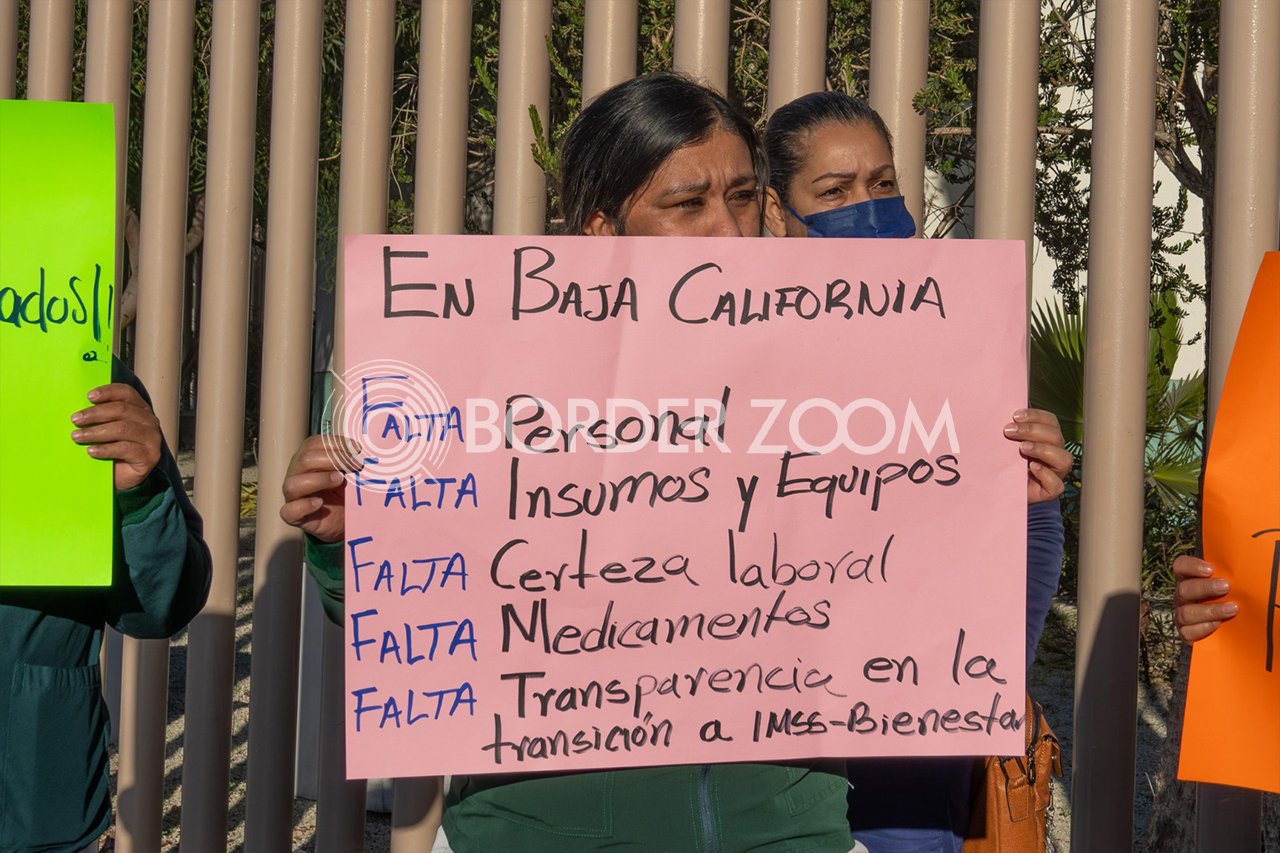 ados!!
EN BAJA CALIFORNIA
FALTA Personal
FALTA Insumos y Equipos
FALTA Certeza laboral
FALTA Medicamentos
FALTA Transparencia en la
transición a IMSS-Bienestar
BORDER ZOOM